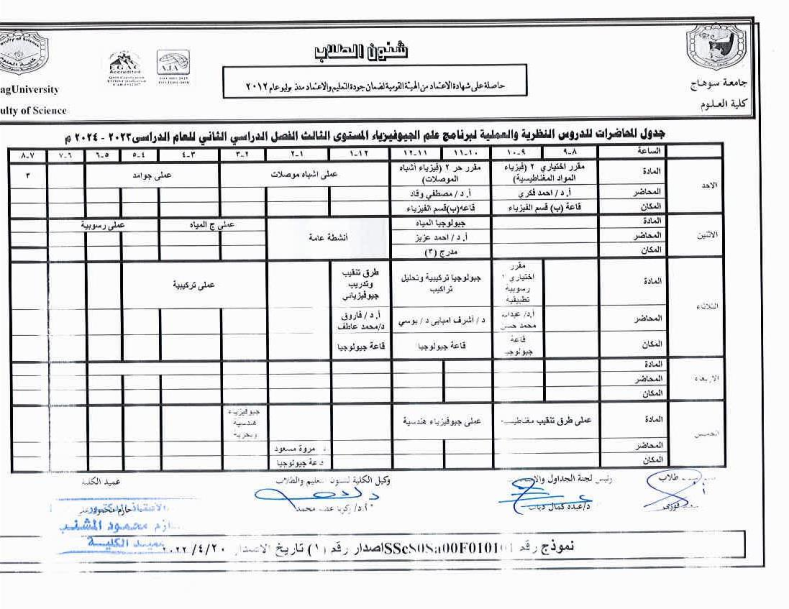 شئون الطلاب
EGAC
Accredited
AJA
agUniversity
culty of Science
جامعة سوهاج
كلية العلوم
حاصلة على شهادة الاعتماد من الهيئة القومية لضمان جودة التعليم والاعتماد منذ يوليو عام ٢٠١٢
جدول المحاضرات للدروس النظرية والعملية لبرنامج علم الجيوفيزياء المستوى الثالث الفصل الدراسي الثاني للعام الدراسى٢٠٢٣ - ٢٠٢٤ م
الساعة ٨-٩ ٩-١٠ ١٠-١١ ١١-١٢ ١٢-١ ١-٢ ٢-٣ ٣-٤ ٤-٥ ٥-٦ ٦-٧ ٧-٨
الاحد
المادة مقرر اختياري ٢ (فيزياء المواد المغناطيسية) مقرر حر ٢ (فيزياء أشباه الموصلات) عملى اشباه موصلات عملى جوامد ٣
المحاضر أ.د / احمد فكري أ.د / مصطفي وفاد
المكان قاعة (ب) قسم الفيزياء قاعه(ب)قسم الفيزياء
الاثنين
المادة جيولوجيا المياه أنشطة عامة عملى ج المياه عملى رسوبية
المحاضر أ.د / احمد عزيز
المكان مدرج (٣)
الثلاثاء
المادة مقرر اختياري رسوبية تطبيقية جيولوجيا تركيبية وتحليل تراكيب طرق تنقيب وتدريب جيوفيزيائي عملى تركيبية
المحاضر محمد حسن د / أشرف امبابى د / بوسي أ.د / فاروق د/محمد عاطف
المكان قاعة جيولوجيا قاعة جيولوجيا قاعة جيولوجيا
الاربعاء
المادة
المحاضر
المكان
الخميس
المادة عملى طرق تنقيب مغناطيسية عملى جيوفيزياء هندسية جيوفيزياء هندسية
المحاضر مروة مسعود
المكان قاعة جيولوجيا
طلاب
رئيس لجنة الجداول
وكيل الكلية لشئون التعليم والطلاب
عميد الكلية
فوزى
د/عبده كمال دياب
أ.د/ زكريا محمد
حازم محمود المشنب
عميد الكلية
نموذج رقم SScS0Sa00F010101 اصدار رقم (١) تاريخ الاصدار ٢٠٢٢/٤/٢٠